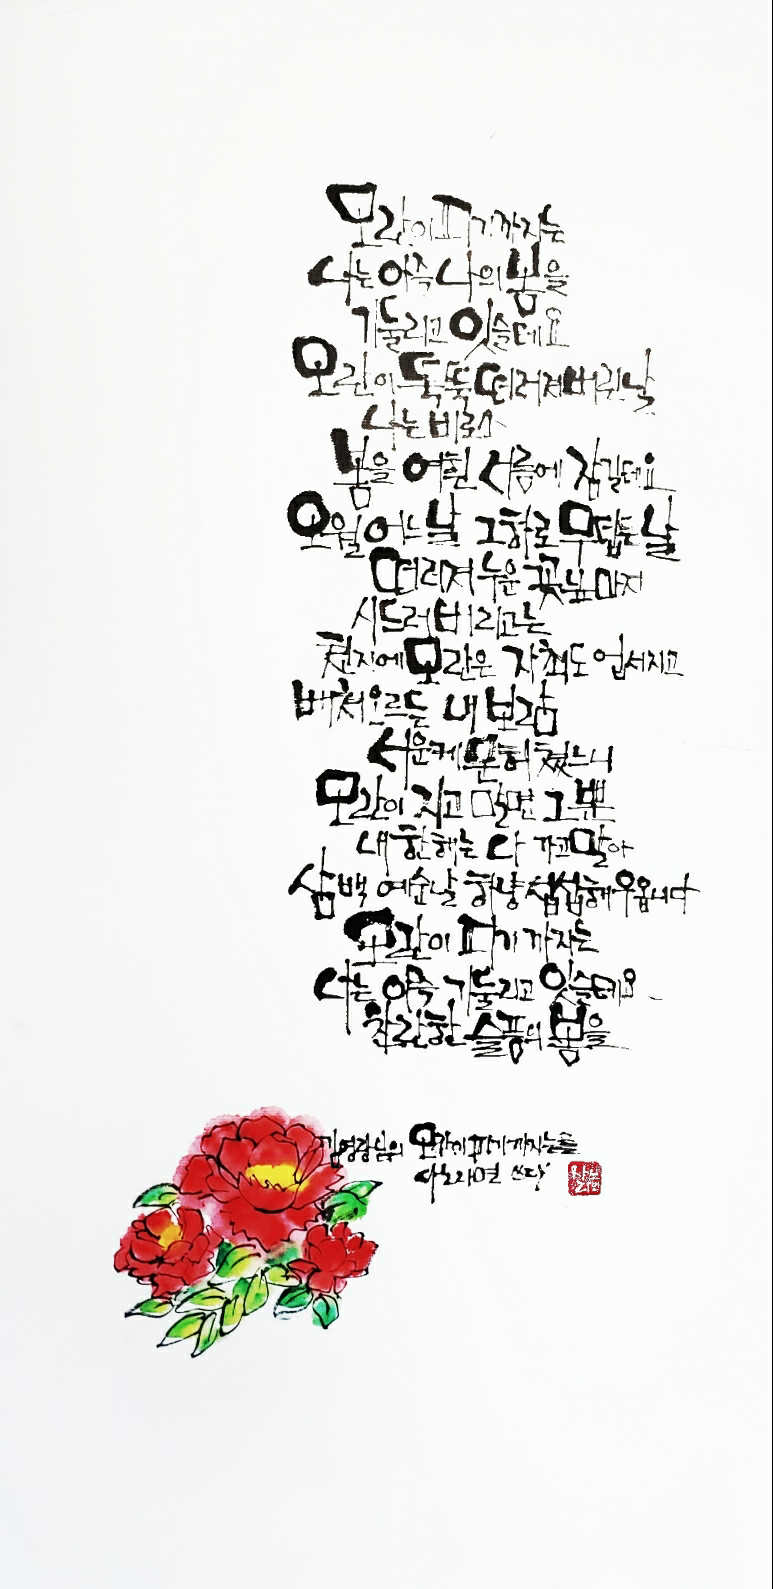 모란이 피기까지는
나는 아즉 나의 봄을
기둘리고 잇슬테요
모란이 뚝뚝 떠러져버린 날
나는 비로소
봄을 여흰 서름에 잠길테요
오월 어느 날 그 하로 무덥든 날
떠러져 누운 꽃닢마저
시드러버리고는
천지에 모란은 자최도 업서지고
뻐쳐오르든 내 보람
서운케 문허졌느니
모란이 지고 말면 그뿐
내 한 해는 다 가고 말아
삼백 예순 날 하냥 섭섭해 우옵내다
모란이 피기까지는
나는 아즉 기둘리고 잇슬테요
찬란한 슬픔의 봄을
김영랑님의 모란이 피기까지는을
쓰다